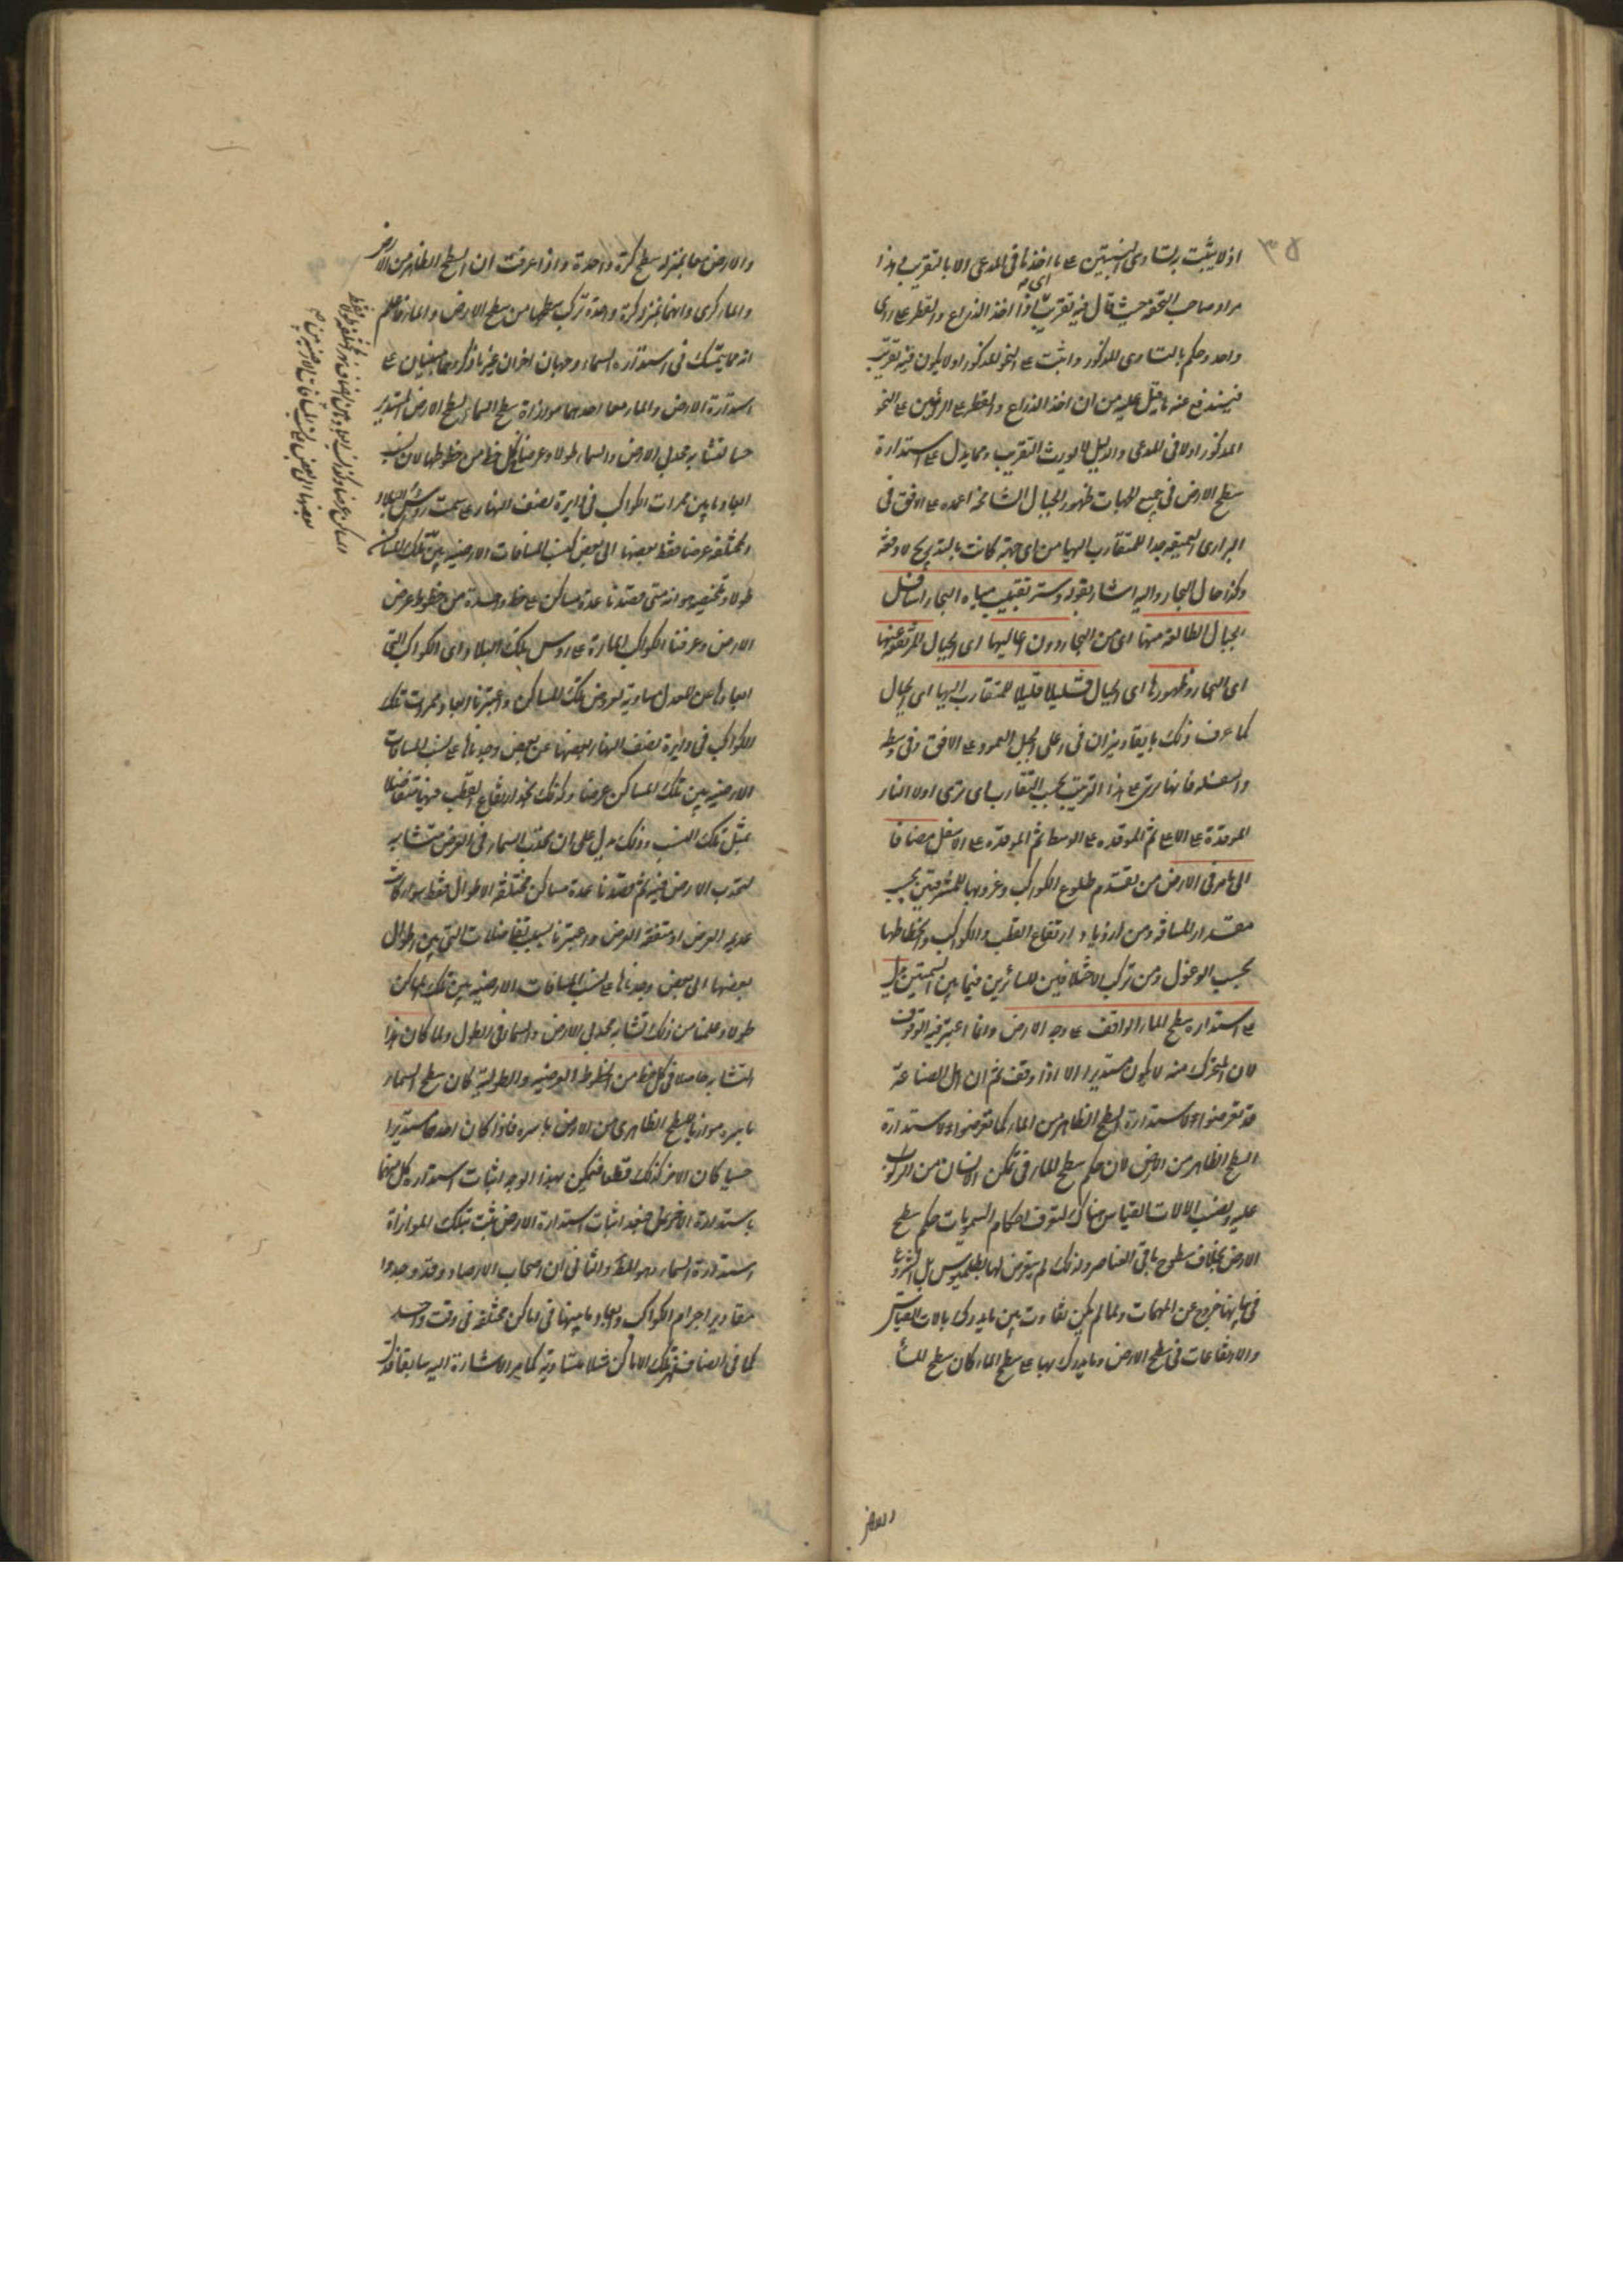 ٣٥
اذ لا يثبت بتساوى النسبتين على ما اخذنا فى المدعى الا بالتقريب هذا
مراد صاحب التحفة حيث قال فيه تقريب اى اذا اخذ الذراع والقطر على راى
واحد وحكم بالتساوى المذكور واثبت على النحو المذكور اولا يكون فيه تقريب
فيندفع عنه ما قيل عليه من ان اخذ الذراع والقطر على الرأيين على النحو
المذكور اولا فى المدعى والدليل لا يورث التقريب ومما يدل على استدارة
سطح الارض فى جميع الجهات ظهور الجبال الشامخة اعمدة على الافق فى
البرارى العميقة جدا للمتقارب اليها من اى جهة كانت بالتدريج لا دفعة
وكذا حال البحار واليه اشار بقوله وستر تقبيب مياه البحار اسافل
الجبال الطالعة منها اى من البحار دون اعاليها اى الجبال المرتفعة عنها
اى البحار وظهورها اى الجبال قليلا قليلا للمتقارب اليها اى الجبال
كما عرف ذلك بايقاد نيران فى اعلى الجبل العمود على الافق وفى وسطه
واسفله فانها ترى على هذا الترتيب بحسب التقارب اى ترى اولا النار
الموقدة على الاعلى ثم الموقدة على الاوسط ثم الموقدة على الاسفل مضافا
الى ما مر فى الارض من تقدم طلوع الكواكب وغروبها للمشرقيين بحسب
مقدار المسافة ومن ازدياد ارتفاع القطب والكواكب وانحطاطها
بحسب الوغول ومن تركب الاختلافين للسائرين فيما بين السمتين يدل
على استدارة سطح الماء الواقف على وجه الارض وانما اعتبر فيه الوقوف
لان المتحرك منه لا يكون مستديرا الا اذا وقف ثم ان اهل الصناعة
قد تعرضوا لاستدارة السطح الظاهر من الماء كما تعرضوا لاستدارة
السطح الظاهر من الارض لان حكم سطح الماء فى تمكن الانسان من الركوب
عليه ونصب الالات القياس هناك لتعرف احكام السمويات حكم سطح
الارض بخلاف سطوح باقى العناصر ولذلك لم يتعرض لها بطلميوس بل الشروع
فى بيانها خروج عن المهمات ولما لم يكن تفاوت بين ما يدرك بالات القياس
والارتفاعات فى سطح الارض وما يدرك بها على سطح الماء كان سطح الماء
والارض
والارض معا بمنزلة سطح كرة واحدة واذا عرفت ان السطح الظاهر من الارض
والماء كرى وانهما بمنزلة كرة واحدة تركب سطحها من سطح الارض والماء فاعلم
انه مما يتمسك فى استدارة السماء وجهان اخران غير ما ذكر وهما مبنيان على
استدارة الارض والماء معا احدهما موازاة سطح السماء لسطح الارض المستدير
حسا لتشابه محدبى الارض والسماء طولا وعرضا فى كل خط من خطوطهما لان نسب
ابعاد ما بين ممرات الكواكب فى دائرة نصف النهار على سمت رؤس البلاد
المختلفة عرضا فقط بعضها الى بعض كنسب المسافات الارضية بين تلك المساكن
طولا وتلخيصه هو انه متى قصدنا عدة مساكن على خط واحد من خطوط عرض
الارض وعرفنا الكواكب المارة على رؤس تلك البلاد اى الكواكب التى
ابعادها عن المعدل مساوية لعروض تلك المساكن واعتبرنا ابعاد ممرات تلك
الكواكب فى دائرة نصف النهار بعضها عن بعض وجدناها على نسب المسافات
الارضية بين تلك المساكن عرضا وكذلك نجد ارتفاع القطب فيها متفاضلا
بمثل تلك النسب وذلك يدل على ان محدب السماء فى العرض متشابه
لمحدب الارض فيه ثم قصدنا عدة مساكن مختلفة الاطوال فقط سواء كانت
عديمة العرض او متفقة العرض واعتبرنا نسب تفاضلات التى بين اطوال
بعضها الى بعض وجدناها على نسب المسافات الارضية بين تلك المساكن
طولا وعلمنا من ذلك تشابه محدبى الارض والسماء فى الطول ولما كان هذا
التشابه حاصلا فى كل خط من الخطوط العرضية والطولية كان سطح السماء
باسره موازيا للسطح الظاهرى من الارض باسره فاذا كان احدهما مستديرا
حسيا كان الاخر كذلك قطعا فيمكن بهذا الوجه اثبات استدارة كل منهما
باستدارة الاخر فعند اثبات استدارة الارض يثبت بتلك الموازاة
استدارة السماء وهو المط والثانى ان اصحاب الارصاد وقد وجدوا
مقادير اجرام الكواكب وابعاد ما بينها فى اماكن مختلفة فى وقت واحد
كما فى انصاف نهر تلك الاماكن مثلا متساوية كما مر الاشارة اليه سابقا